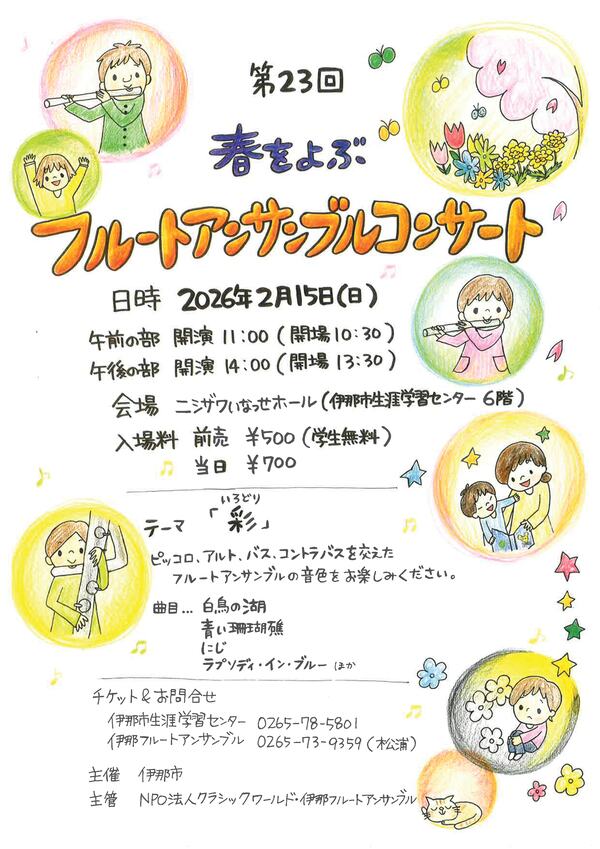 第23回
春をよぶ
フルートアンサンブルコンサート
日時 2026年2月15日(日)
午前の部 開演 11:00 (開場10:30)
午後の部 開演 14:00 (開場 13:30)
会場 ニシザワいなっせホール(伊那市生涯学習センター 6階)
入場料 前売 ¥500 (学生無料)
当日 ¥700
いろどり
テーマ 「彩」
ピッコロ、アルト、バス、コントラバスを交えた
フルートアンサンブルの音色をお楽しみください。
曲目... 白鳥の湖
青い珊瑚礁
にじ
ラプソディ・イン・ブルー ほか
チケット&お問合せ
伊那市生涯学習センター 0265-78-5801
伊那フルートアンサンブル 0265-73-9359 (松浦)
主催 伊那市
主管 NPO法人クラシックワールド・伊那フルートアンサンブル